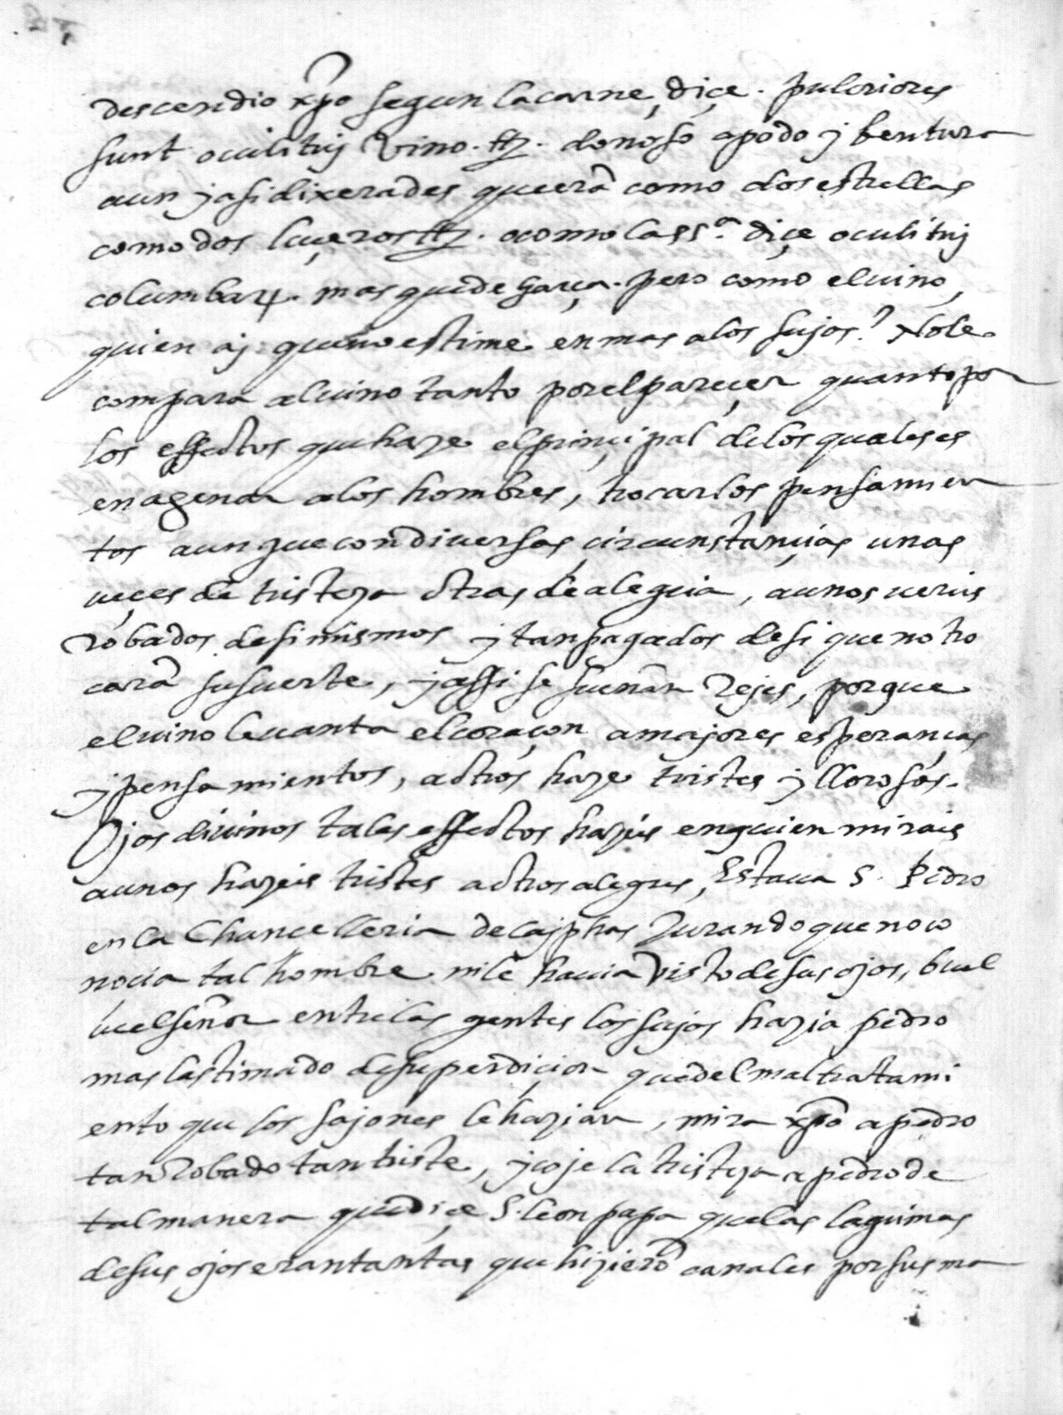 descendio xpo segun la carne, diçe. pulcriores
sunt oculi tuj vino. donoso apodo j bentura
aun j asi dixerades que erã como dos estrellas
como dos luçeros. o como la ssª. diçe oculi tuj
columbarƺ. mas que de garça. pero como el vino,
quien aj que no estime en mas a los sujos? No le
compara al vino tanto por el pareçer quanto por
los effectos que haze el prinçipal de los quales es
enagenar a los hombres, trocar los pensamien
tos aunque con diversas circunstançias unas
veçes de tristeza otras de alegria, a unos vereis
robados de si mismos j tan pagados de si que no tro
carã su suerte, j assi se suenan Rejes, porque
el vino levanta el coraçon a majores esperanças
j pensamientos, a otros haze tristes j llorosos.
Ojos divinos tales effectos hazeis en quien mirais
a unos hazeis tristes a otros alegres, Estava S. Pedro
en la Chancelleria de Cajphas Jurando que no co
nocia tal hombre ni le havia visto de sus ojos, buel
ve el señor entre las gentes los sujos hazia pedro
mas lastimado de su perdiçion que del maltratami
ento que los sajones le hazian, mira xpo a pedro
tan Robado tan triste, j coje la tristeza a pedro de
tal manera que diçe S. leon papa que las lagrimas
de sus ojos eran tantas que hizierõ canales por sus me